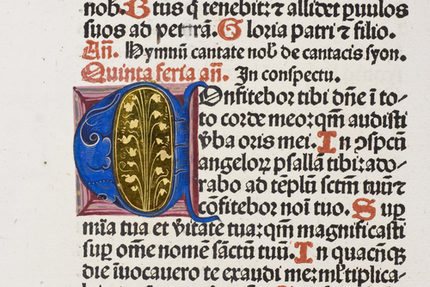 nob. Btus q̃ tenebit: ⁊ allidet ꝑuulos
suos ad petrã. Gloria patri ⁊ filio.
Añ. Hymnũ cantate nob̃ de cantacis syon.
Quinta feria añ. In conspectu.
Confitebor tibi dñe ĩ to-
to corde meo: qm̃ audisti
ṽba oris mei. In ↄspcũ
angeloꝝ psallã tibi: ado-
rabo ad tẽplũ sctm̃ tuũ ⁊
cõfitebor noĩ tuo. Sup
mĩa tua et ṽitate tua: qm̃ magnificasti
suꝑ om̃e nomẽ sãctũ tuũ. In quacũqꝫ
die ĩuocauero te exaudi me: ml̃tiplica-